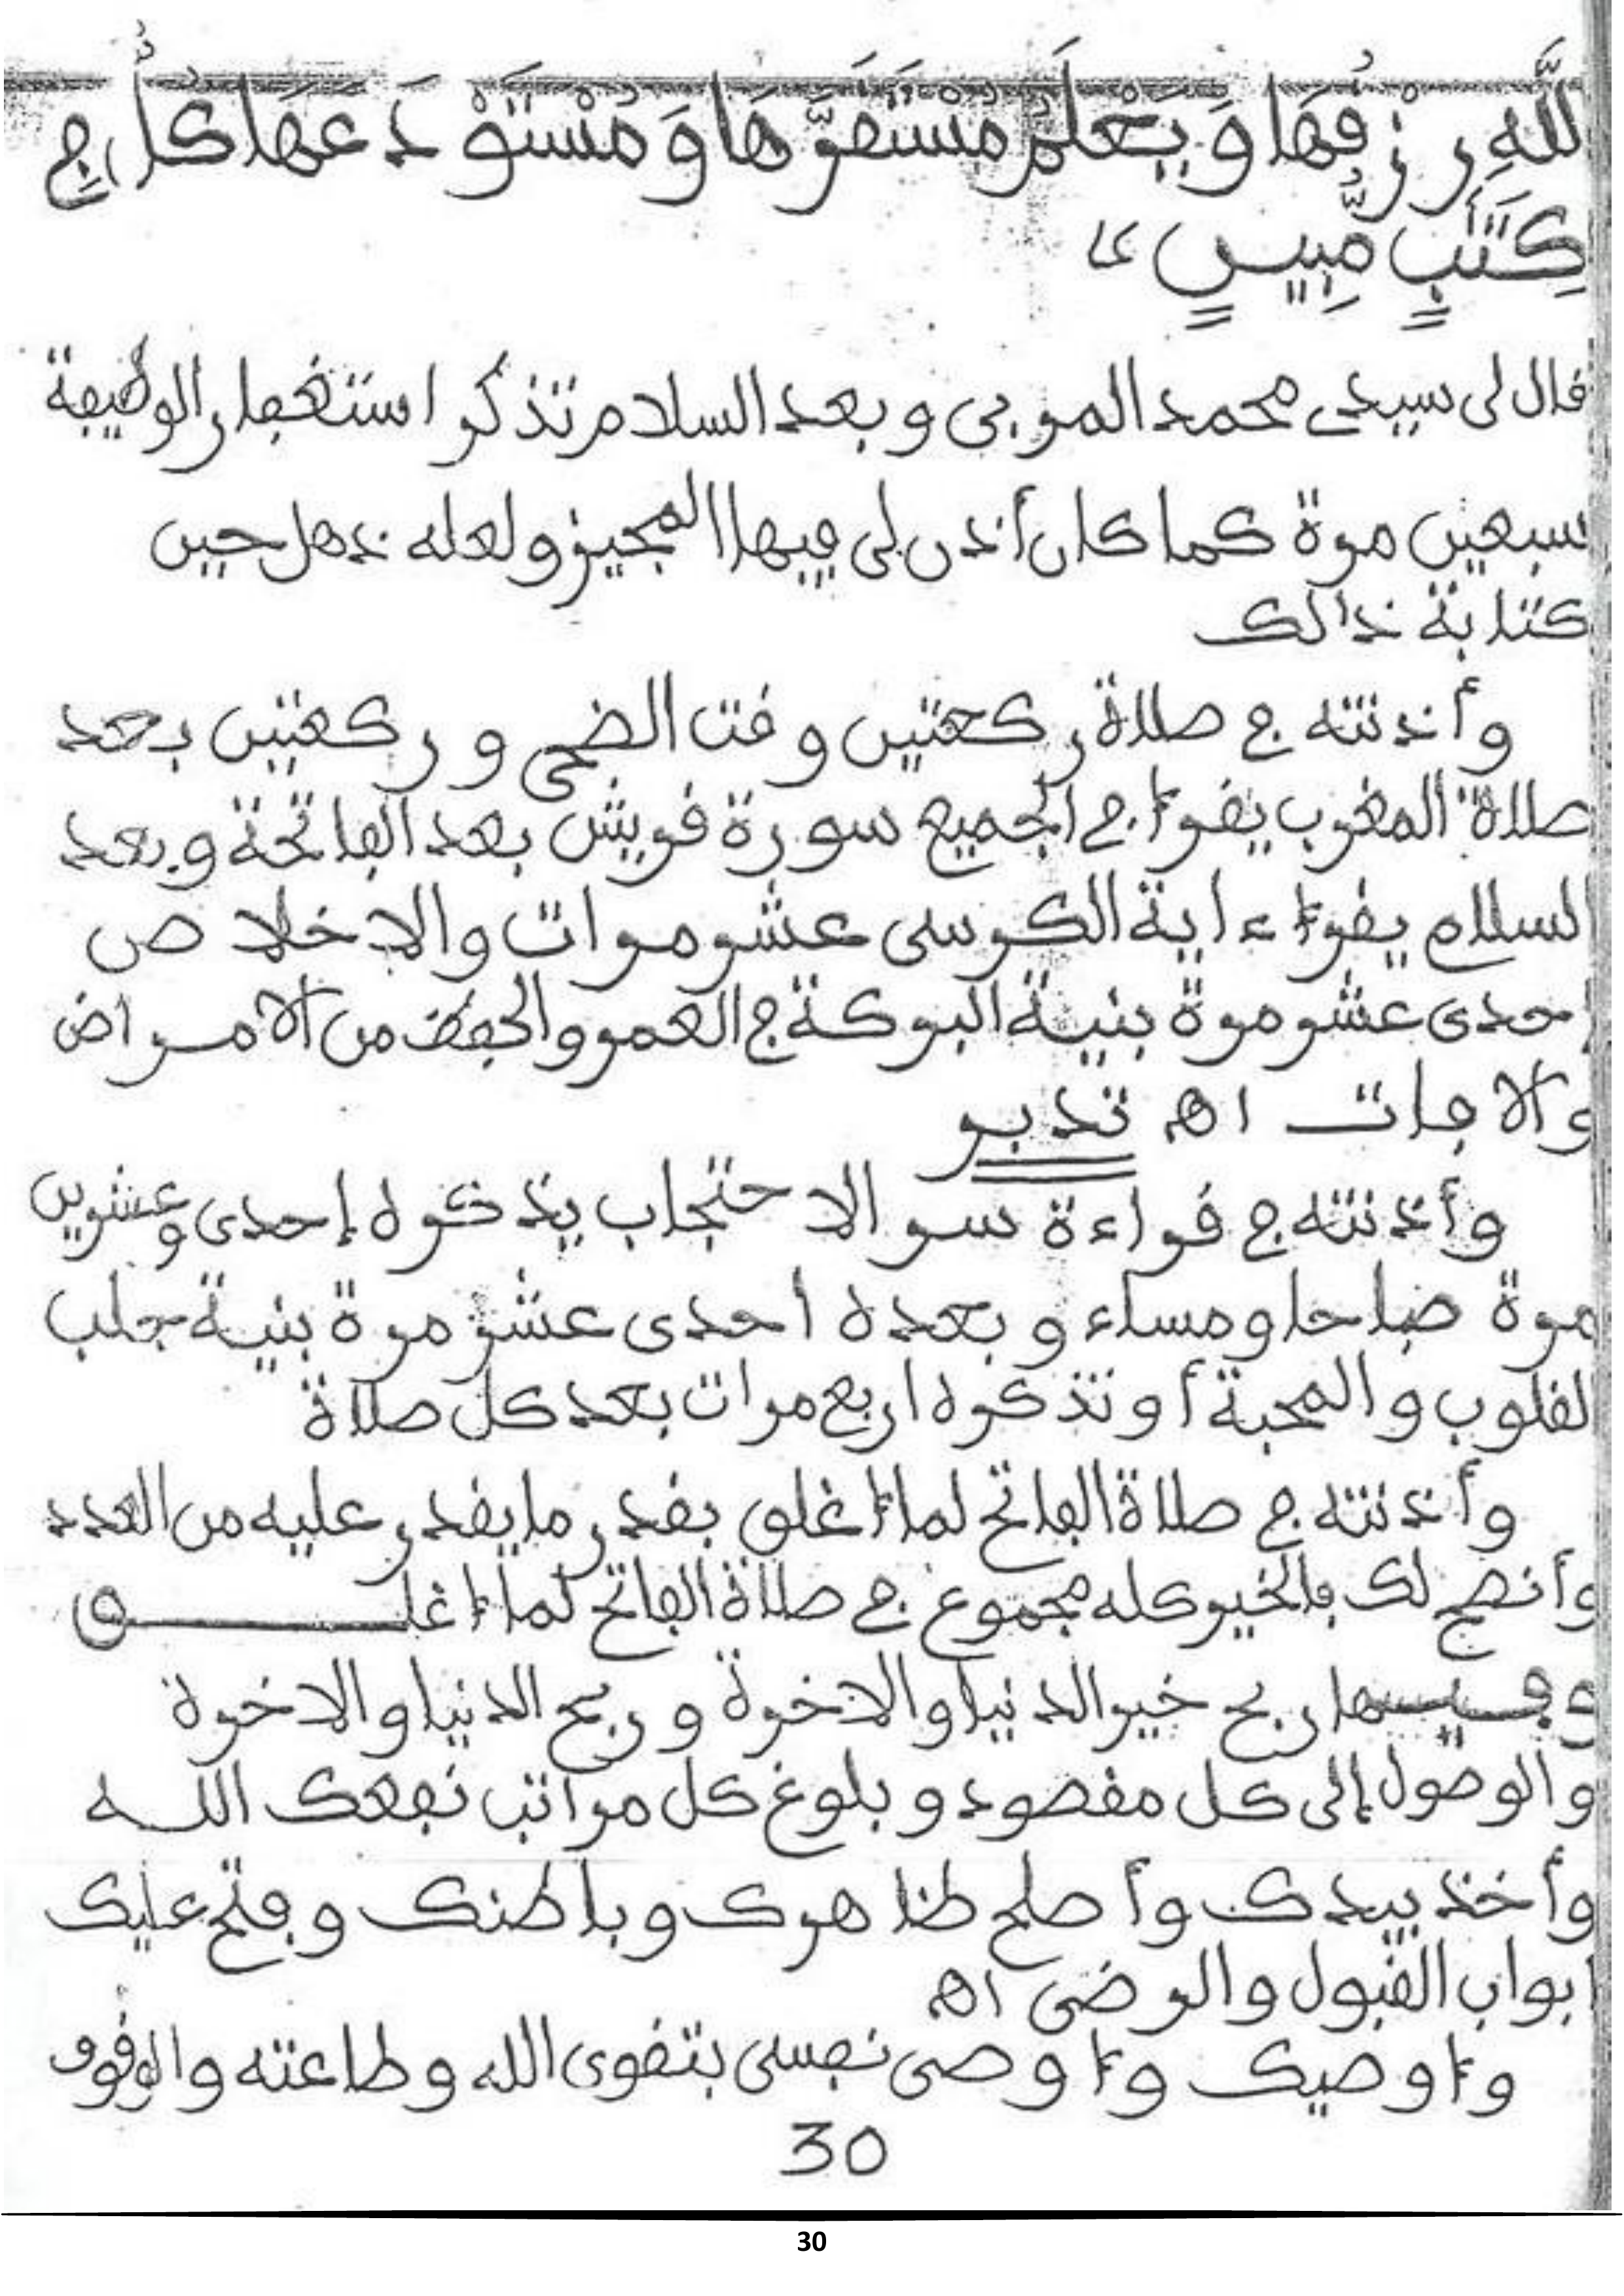 اللَّهِ رِزْقُهَا وَيَعْلَمُ مُسْتَقَرَّهَا وَمُسْتَوْدَعَهَا كُلٌّ فِي
كِتَٰبٍ مُّبِينٍ
قال لى سيدى محمد المربى وبعد السلام تذكر استغفار الوظيفة
سبعين مرة كما كان أذن لى فيها المجيز ولعله ذهل حين
كتابة ذالك
وأذنته في صلاة ركعتين وقت الضحى وركعتين بعد
صلاة المغرب يقرأ في الجميع سورة قريش بعد الفاتحة وبعد
السلام يقرأ ءاية الكرسى عشر مرات والاخلاص
إحدى عشر مرة بنية البركة في العمر والحفظ من الأمراض
والآفات اه تدبر
وأذنته في قراءة سر الاحتجاب يذكره إحدى وعشرين
مرة صباحا ومساء وبعده احدى عشر مرة بنية جلب
القلوب والمحبة أو تذكره اربع مرات بعد كل صلاة
وأذنته في صلاة الفاتح لما أغلق بقدر ما يقدر عليه من العدد
وأنصح لك فالخير كله مجموع في صلاة الفاتح لما أغلق
وفيها ربح خير الدنيا والاخرة وربح الدنيا والاخرة
والوصول إلى كل مقصود وبلوغ كل مراتب نفعك الله
وأخذ بيدك وأصلح ظاهرك وباطنك وفتح عليك
ابواب القبول والرضى اه
وأوصيك وأوصى نفسى بتقوى الله وطاعته والوقوف
30
30